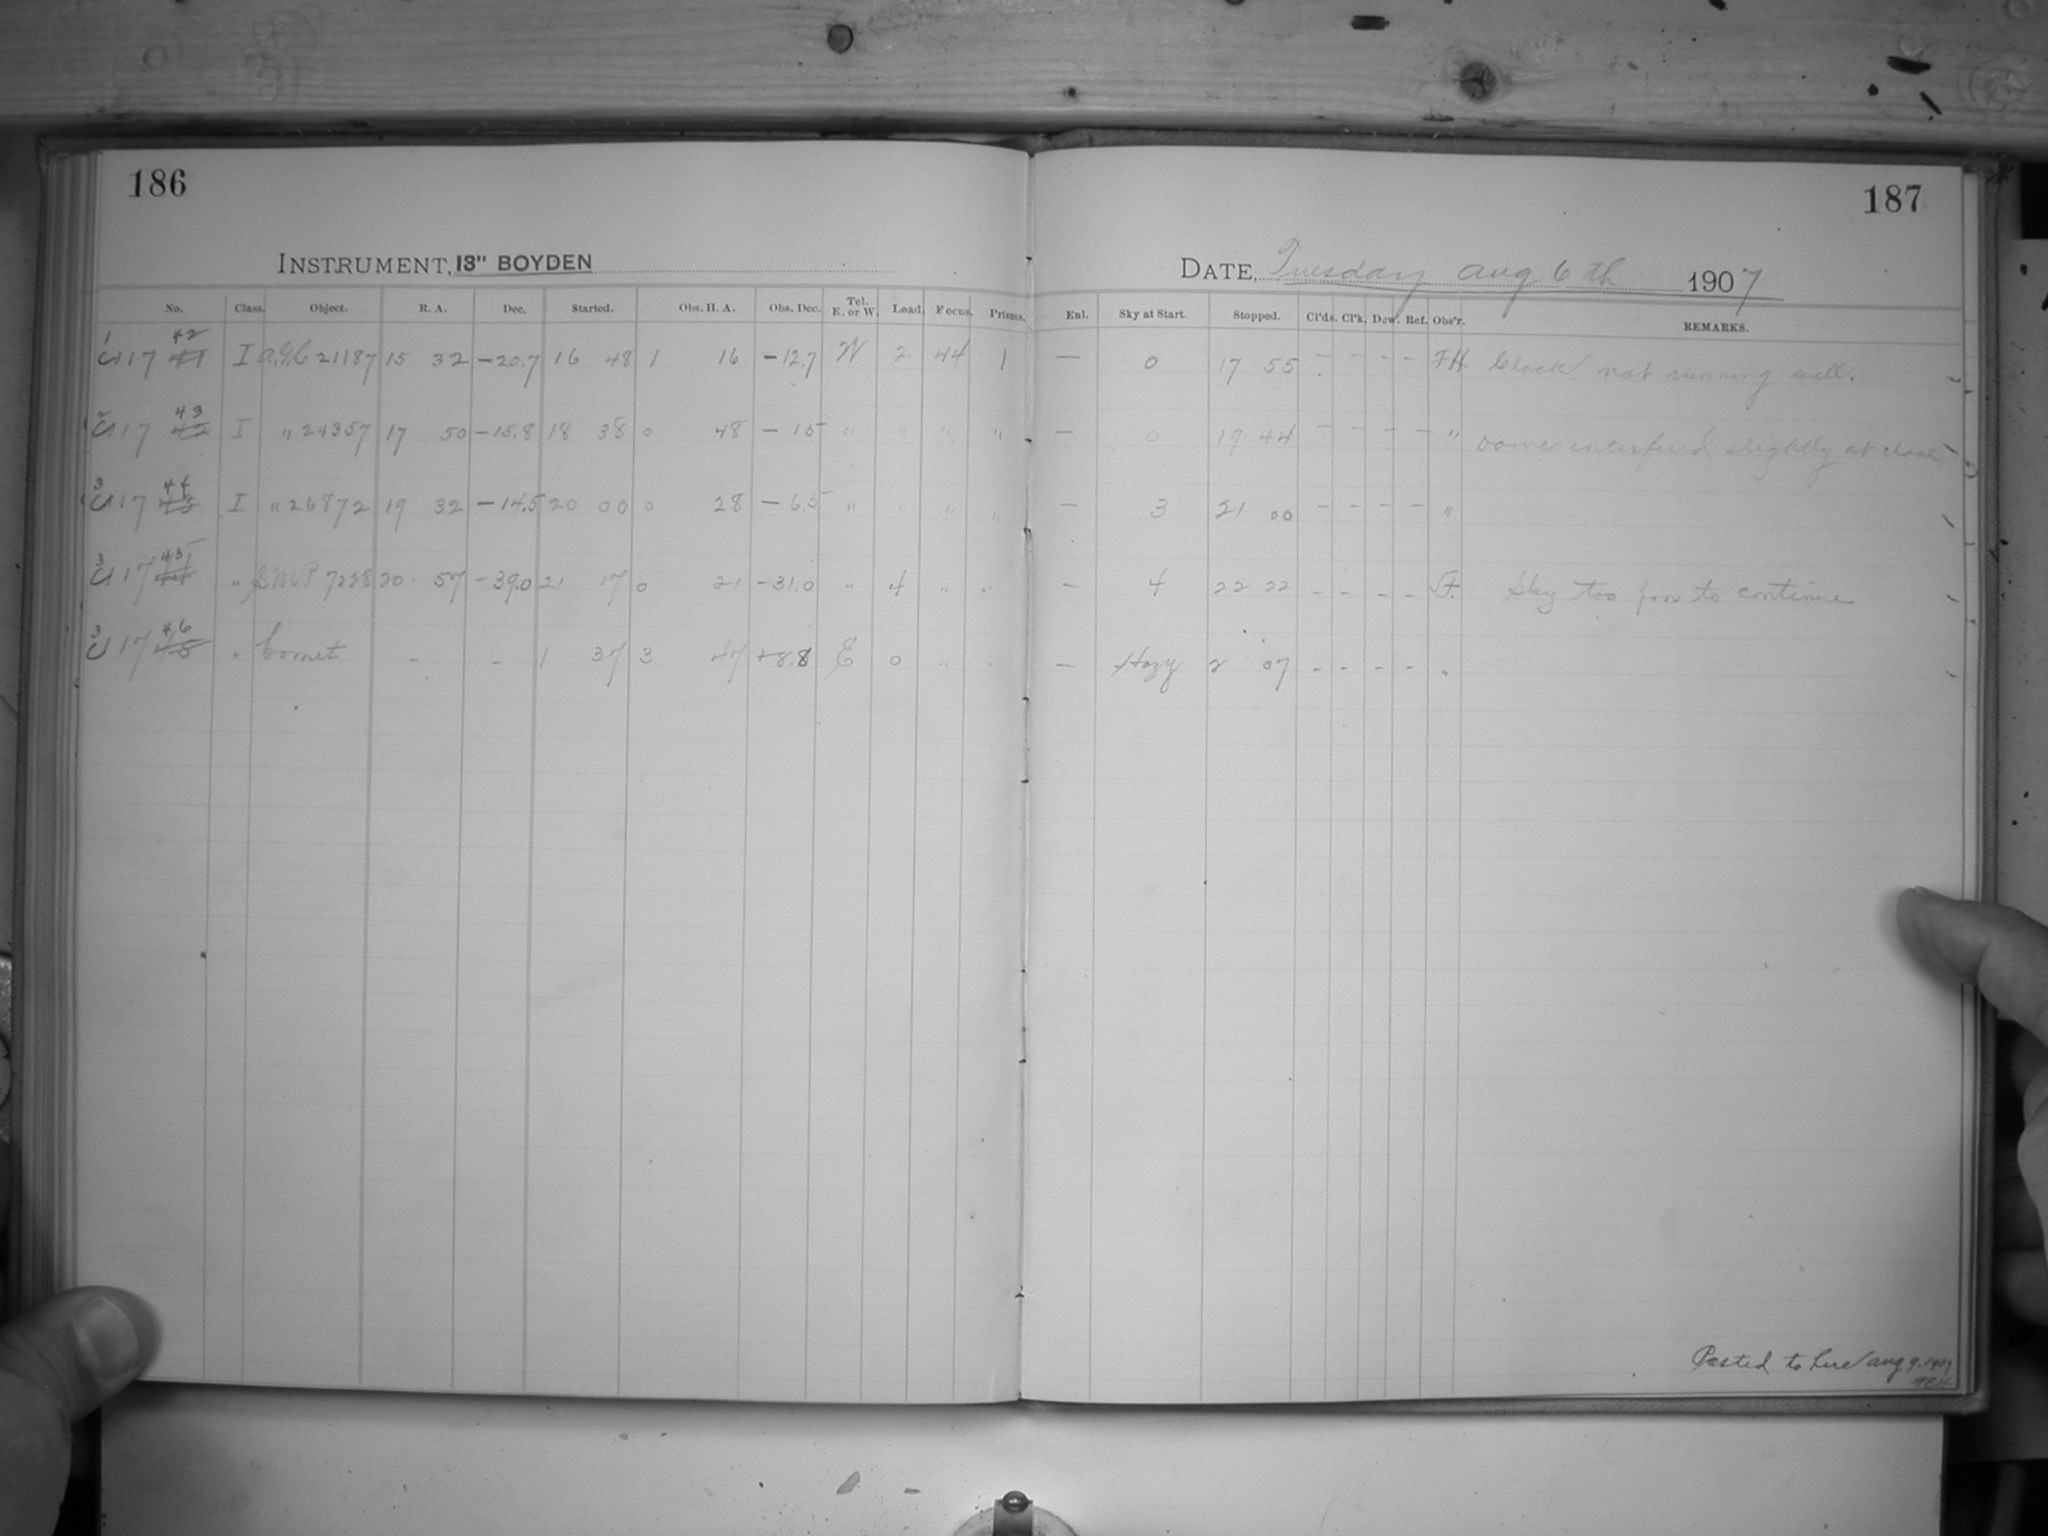 186
187
INSTRUMENT, 13" BOYDEN
DATE, Tuesday Aug 6th 1907
No. Class. Object. R. A. Dec. Started. Obs. H. A. Obs. Dec. Tel. E. or W. Load. Focus. Prisms. Enl. Sky at Start. Stopped. Cl'ds. Cl'k. Dew. Ref. Obs'r. REMARKS.
1 42
17 41 I A.G.C 21187 15 32 -20.7 16 48 1 16 -12.7 W 2 44 1 — 0 17 55 - - - - FH Clock not running well.
2 43
17 42 I " 24357 17 50 -15.8 18 38 0 48 - 15 " " " " — 0 19 44 - - - - " Dome interfered slightly at close
3 44
17 43 I " 26872 19 32 -14.5 20 00 0 28 - 6.5 " " " " — 3 21 00 - - - - "
3 45
17 44 " S.M.P 7228 20 57 -39.0 21 17 0 21 -31.0 " 4 " " — 4 22 22 - - - - Sky too poor to continue
3 46
17 45 " Comet - - 1 37 3 47 +8.8 E 0 " " — Hazy 2 07 - - - - "
Posted to here Aug 9. 1907